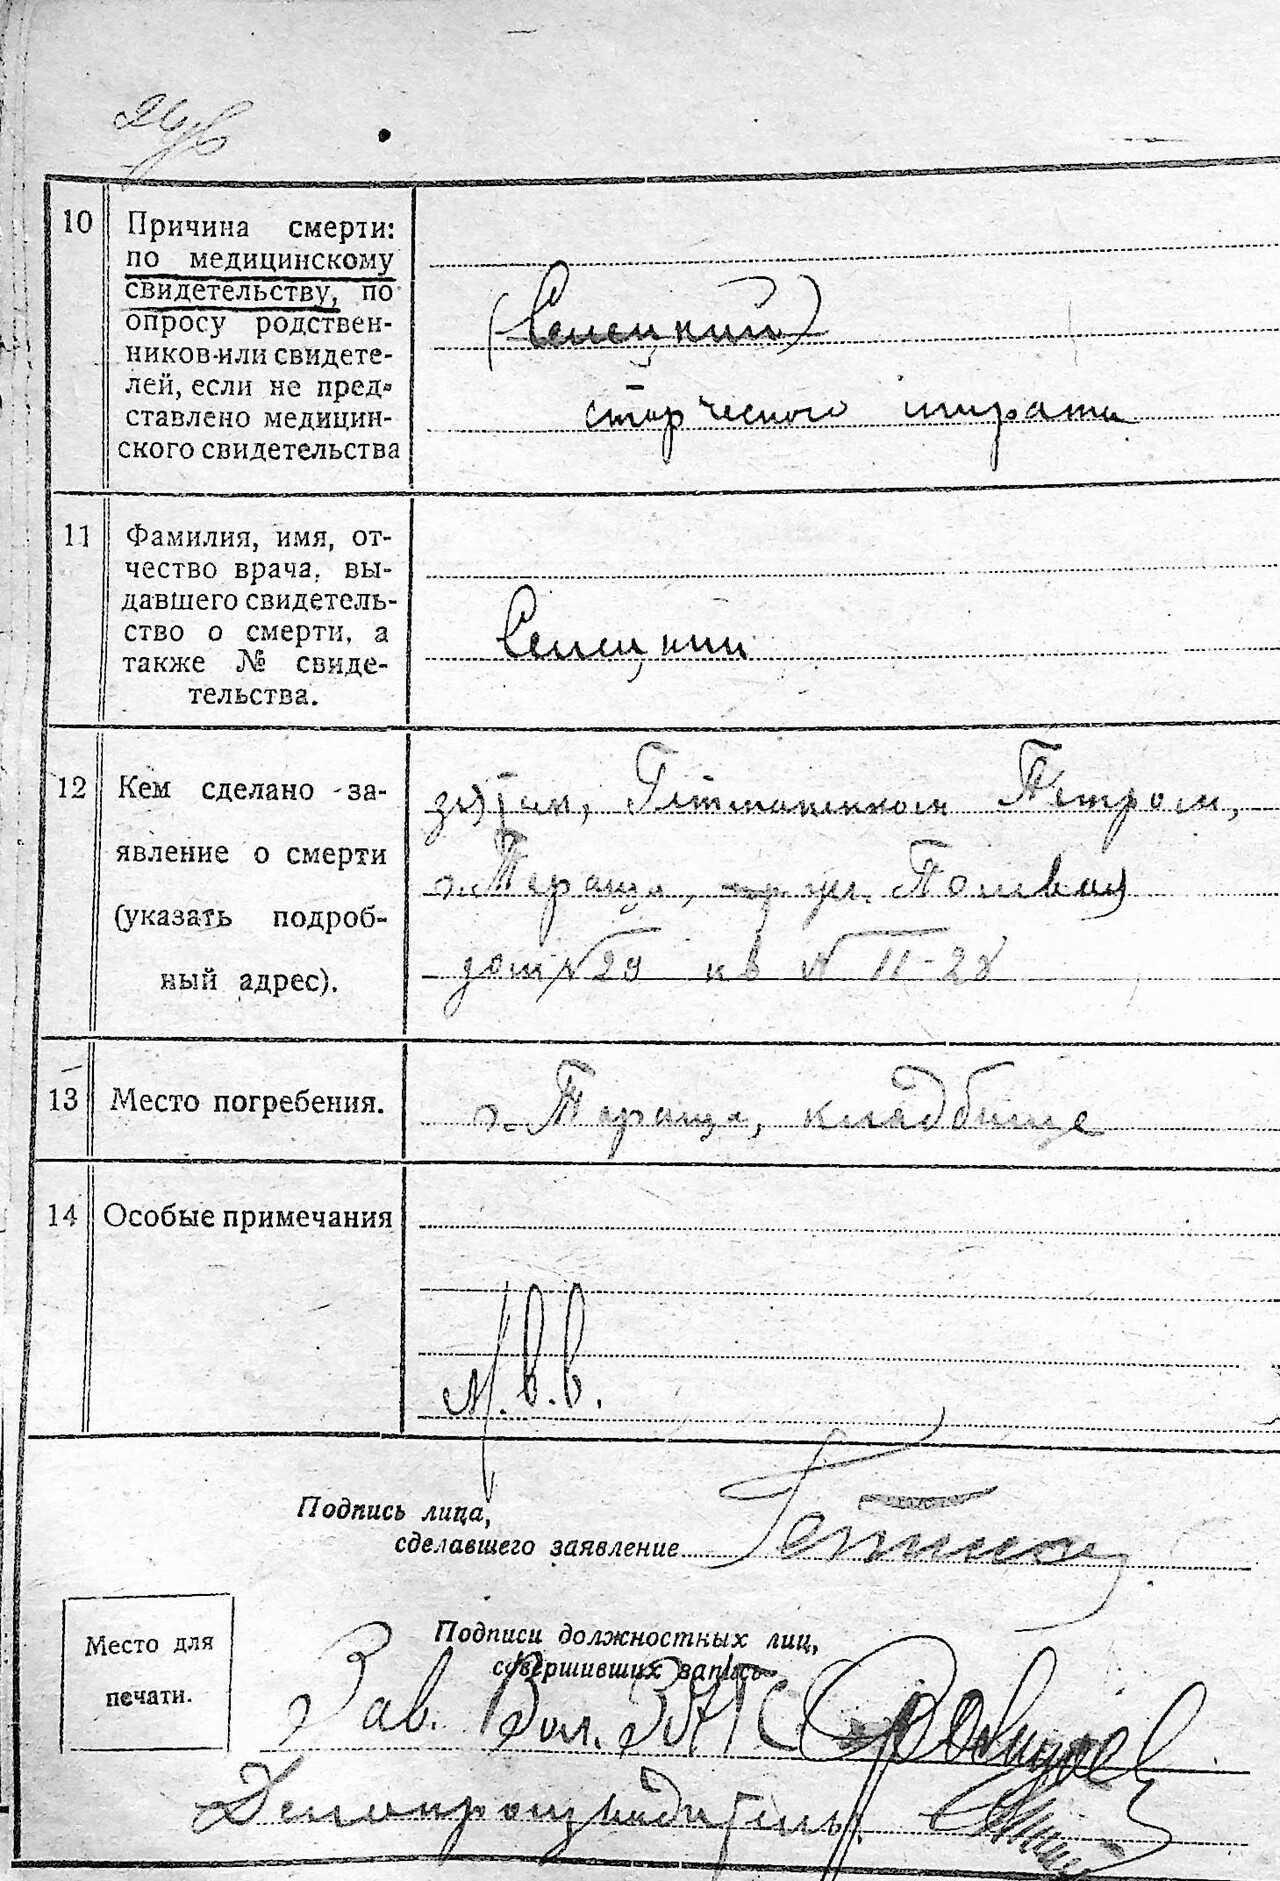 10 Причина смерти:
по медицинскому
свидетельству, по
опросу родствен-
ников или свидете-
лей, если не пред-
ставлено медицин-
ского свидетельства
(Селецкий)
11 Фамилия, имя, от-
чество врача, вы-
давшего свидетель-
ство о смерти, а
также № свиде-
тельства.
Селецкий
12 Кем сделано за-
явление о смерти
(указать подроб-
ный адрес).
Петром,
г. Тараща, ул. Полевая
дом № 29 кв № II-28
13 Место погребения.
г. Тараща, кладбище
14 Особые примечания
Подпись лица,
сделавшего заявление
Место для
печати.
Подписи должностных лиц,
совершивших запись
Зав. Вол. ЗАГС
Делопроизводитель